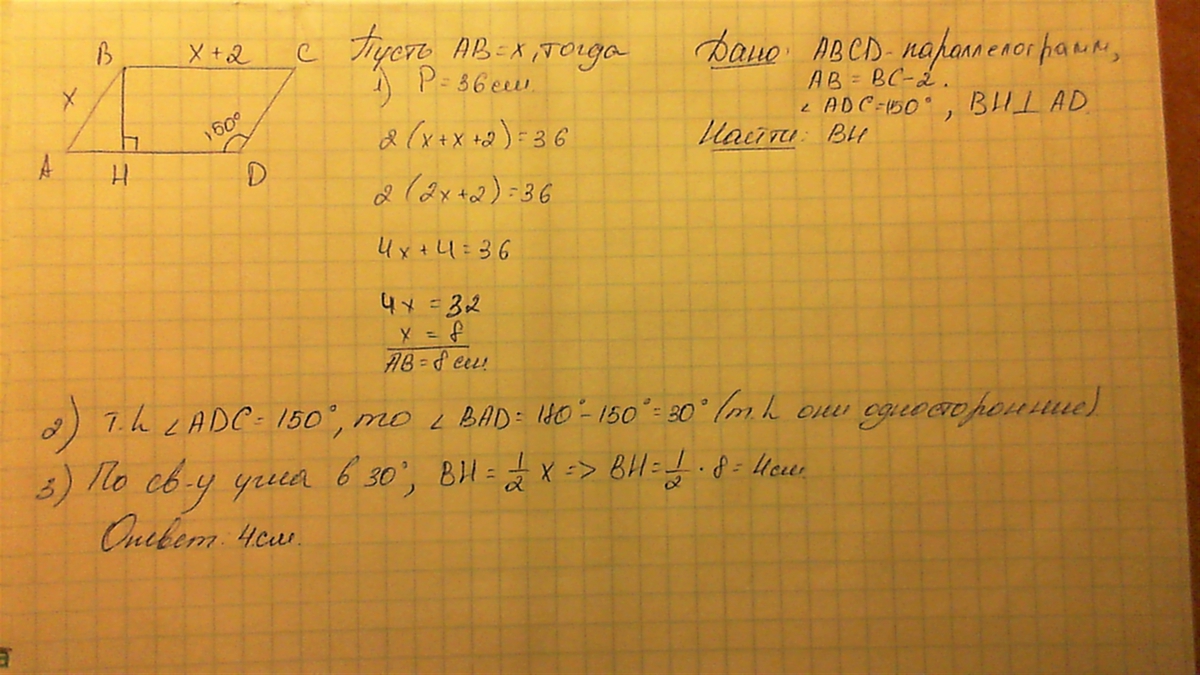 B x+2 C
x
150°
A H D
Пусть AB=x, тогда
1) P=36см.
2(x+x+2)=36
2(2x+2)=36
4x+4=36
4x=32
x=8
AB=8см
Дано: ABCD-параллелограмм,
AB=BC-2.
∠ADC=150°, BH⊥AD.
Найти: BH
2) Т.к ∠ADC=150°, то ∠BAD=180°-150°=30° (т.к они односторонние)
3) По св-у угла в 30°, BH=1/2 x => BH=1/2·8=4см.
Ответ: 4см.